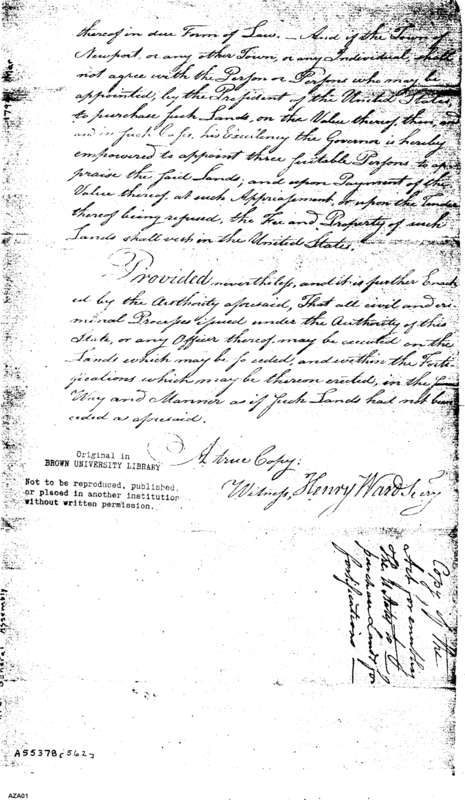 thereof in due Form of Law. — And if the Town of
Newport, or any other Town, or any Individual, shall
not agree with the Person or Persons who may be
appointed, by the President of the United States,
to purchase such Lands, on the Value thereof, then, and
and in such Case, his Excellency the Governor is hereby
empowered to appoint three suitable Persons to ap
praise the said Lands; and upon Payment of the
Value thereof, at such Appraisement, or upon the Tender
thereof being refused, the Fee and Property of such
Lands shall vest in the United States.
Provided nevertheless, and it is further Enact
ed by the Authority aforesaid, That all civil and cri
minal Processes issued under the Authority of this
State, or any Officer thereof, may be executed on the
Lands which may be so ceded, and within the Forti
fications which may be thereon erected, in the same
Way and Manner as if such Lands had not been
ceded as aforesaid.
A true Copy:
Witness, Henry Ward Secry
Original in
BROWN UNIVERSITY LIBRARY
Not to be reproduced, published,
or placed in another institution
without written permission.
Copy of the
Act for enabling
the U States to
purchase Lands for
fortifications —
General Assembly
A55378(562)
AZA01